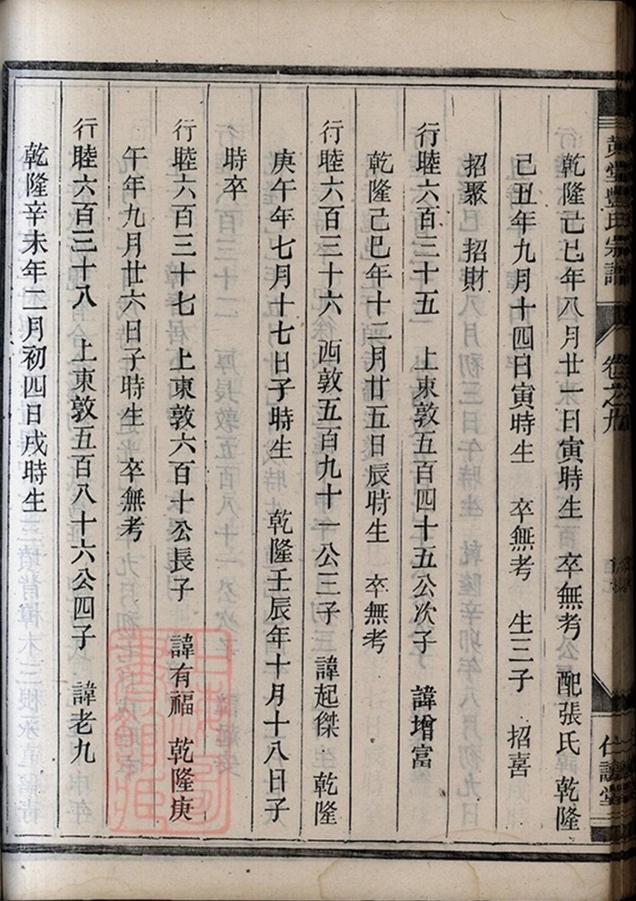 黃堂豐氏宗譜 卷之九
乾隆己巳年八月廿一日寅時生 卒無考 配張氏 乾隆
己丑年九月十四日寅時生 卒無考 生三子 招喜
招聚 招財
行睦六百三十五 上東敦五百四十五公次子 諱增富
乾隆己巳年十二月廿五日辰時生 卒無考
行睦六百三十六 西敦五百九十一公三子 諱起傑 乾隆
庚午年七月十七日子時生 乾隆壬辰年十月十八日子
時卒
行睦六百三十七 上東敦六百十公長子 諱有福 乾隆庚
午年九月廿六日子時生 卒無考
行睦六百三十八 上東敦五百八十六公四子 諱老九
乾隆辛未年二月初四日戌時生